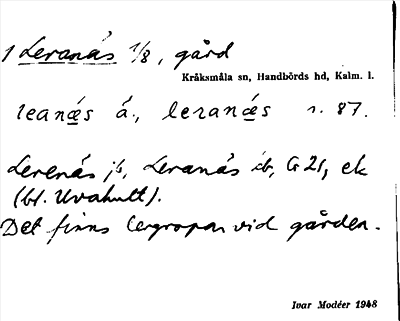 1 Leranås 1/8, gård
Kråksmåla sn, Handbörds hd, Kalm. l.
leanæs á, leranæs r. 87.
Lerenås jb, Leranås db, G 21, ek
(bl. Uvahult).
Det finns lergropar vid gården.
Ivar Modéer 1948